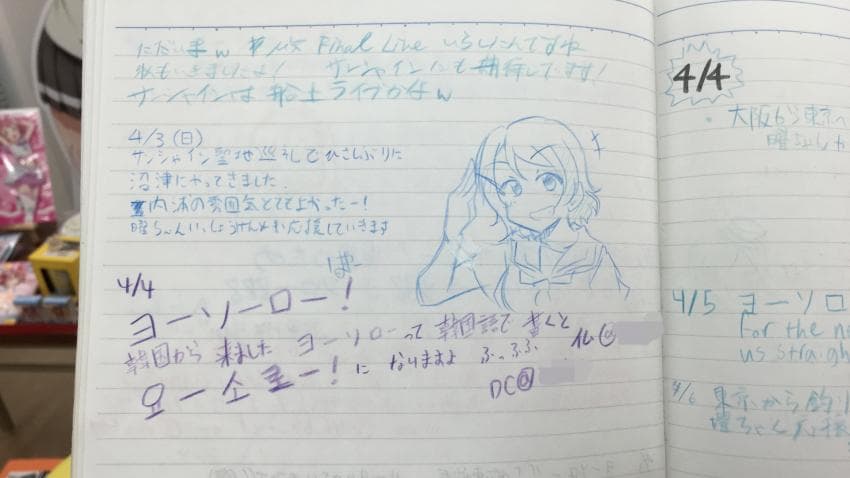 ただいまw μ's Final Live いらしたんですね
私もいきましたよ! サンシャインにも期待してます!
サンシャインは船上ライブかなw
4/3(日)
サンシャイン聖地巡礼でひさしぶりに
沼津にやってきました.
内浦の雰囲気とてもよかったー!
曜ちゃんいっしょうけんめい応援していきます
4/4
ヨーソーロー!
韓国から来ました ヨーソローって韓国語で書くと
요ー소로ー! に なりますよ ふっふふ
DC@
4/4
・大阪から東京へ
曜ちゃん
4/5 ヨーソロ
For the n
us straigh
4/6 東京から釣り
曜ちゃん応援